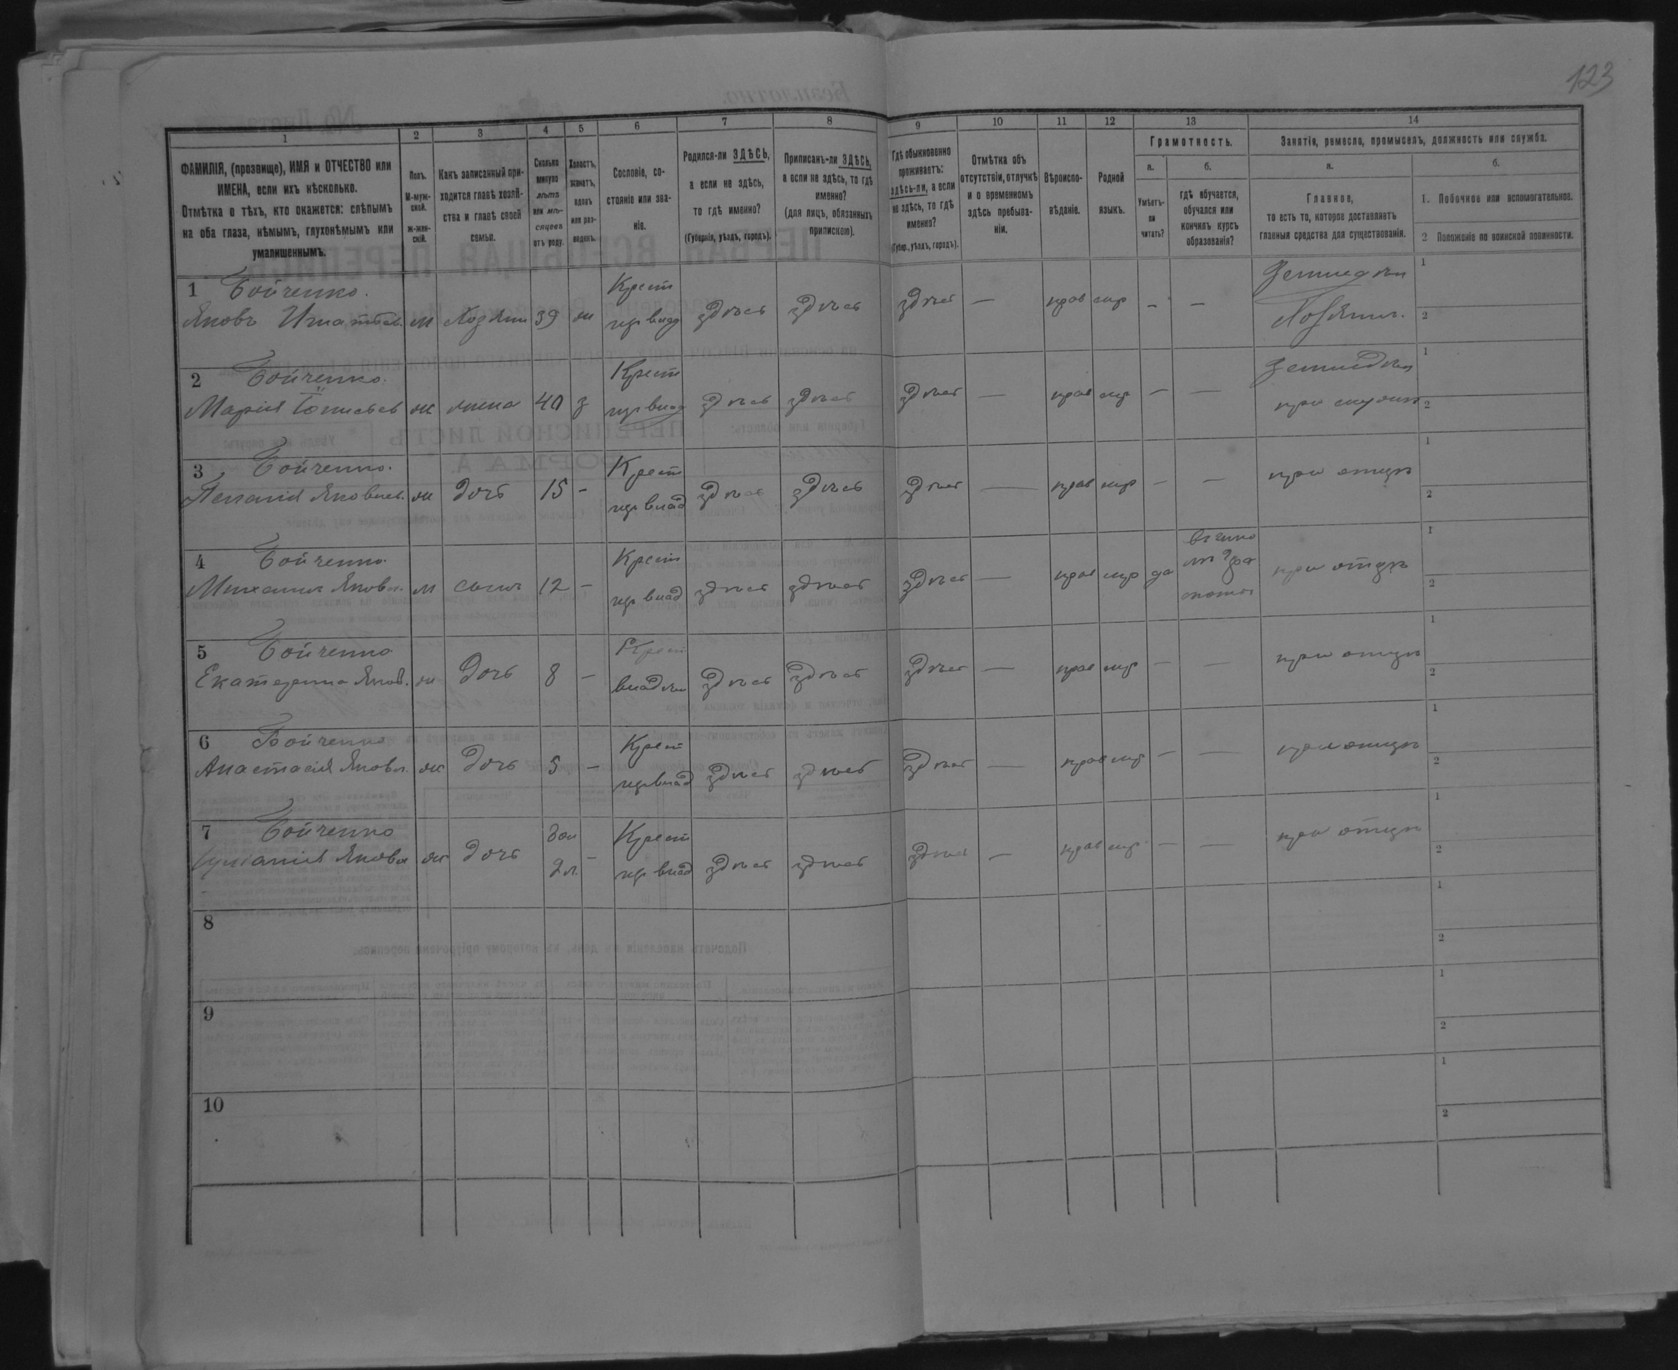 123
1 2 3 4 5 6 7 8 9 10 11 12 13 14
ФАМИЛІЯ, (прозвище), ИМЯ и ОТЧЕСТВО или
ИМЕНА, если ихъ нѣсколько.
Отмѣтка о тѣхъ, кто окажется: слѣпымъ
на оба глаза, нѣмымъ, глухонѣмымъ или
умалишеннымъ.
Полъ.
М-муж-
ской.
ж-жен-
скій.
Какъ записанный при-
ходится главѣ хозяй-
ства и главѣ своей
семьи.
Сколько
минуло
лѣтъ
или мѣ-
сяцевъ
отъ роду.
Холостъ,
женатъ,
вдовъ
или раз-
веденъ.
Сословіе, со-
стояніе или зва-
ніе.
Родился-ли ЗДѢСЬ,
а если не здѣсь,
то гдѣ именно?
(Губернія, уѣздъ, городъ).
Приписанъ-ли ЗДѢСЬ,
а если не здѣсь, то гдѣ
именно?
(для лицъ, обязанныхъ
припискою).
Гдѣ обыкновенно
проживаетъ:
здѣсь-ли, а если
не здѣсь, то гдѣ
именно?
(Губер., уѣздъ, городъ).
Отмѣтка объ
отсутствіи, отлучкѣ
и о временномъ
здѣсь пребыва-
ніи.
Вѣроиспо-
вѣданіе.
Родной
языкъ.
Грамотность.
а.
Умѣетъ-
ли
читать?
б.
гдѣ обучается,
обучался или
кончилъ курсъ
образованія?
Занятіе, ремесло, промыселъ, должность или служба.
а.
Главное,
то есть то, которое доставляетъ
главныя средства для существованія.
б.
1. Побочное или вспомогательное.
2 Положеніе по воинской повинности.
1 Бойченко
Яковъ м Хозяин 39 ж Крест здѣсь здѣсь здѣсь — прав мр — — Хозяин
1
2
2 Бойченко
Марія ж жена 40 з Крест здѣсь здѣсь здѣсь — прав мр — —
1
2
3 Бойченко
ж дочь 15 - Крест здѣсь здѣсь здѣсь — прав мр — — при отцѣ
1
2
4 Бойченко
Михаилъ Яковл. м сынъ 12 - Крест здѣсь здѣсь здѣсь — прав мр да при отцѣ
1
2
5 Бойченко
Екатерина Яков. ж дочь 8 - Крест здѣсь здѣсь здѣсь — прав мр — — при отцѣ
1
2
6 Бойченко
Анастасія Яковл. ж дочь 5 - Крест здѣсь здѣсь здѣсь — прав мр — — при отцѣ
1
2
7 Бойченко
Яковл ж дочь 2 л - Крест здѣсь здѣсь здѣсь — прав мр — — при отцѣ
1
2
8
1
2
9
1
2
10
1
2